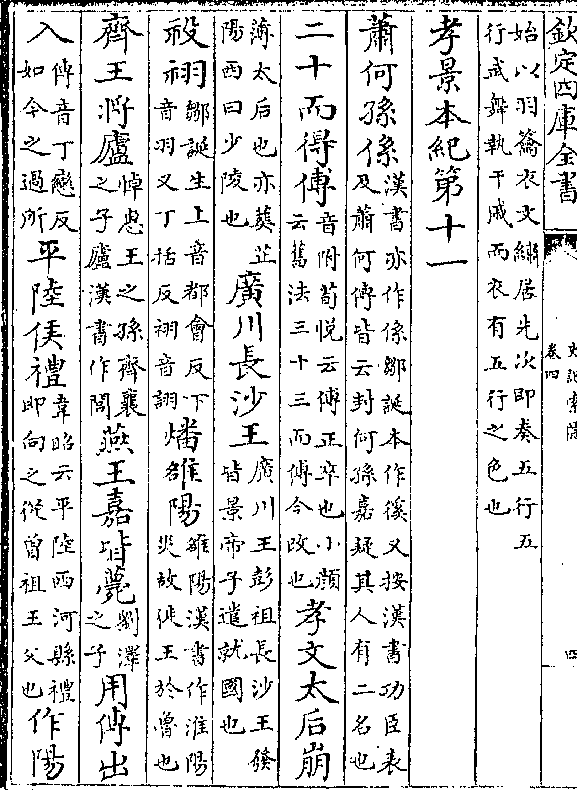 欽定四庫全書
史記索隱
卷四
四
始以羽籥衣文繡居先次即奏五行五
行武舞執干戚而衣有五行之色也
孝景本紀第十一
蕭何孫係漢書亦作係鄒誕本作傒又按漢書功臣表及蕭何傳皆云封何孫嘉疑其人有二名也
二十而得傅音附荀悦云傅正卒也小顔云舊法三十三而傅今改也孝文太后崩
薄太后也亦葬芷陽西曰少陵也廣川長沙王廣川王彭祖長沙王發皆景帝子遣就國也
祋祤鄒誕生上音都會反下音羽又丁括反祤音詡燔雒陽雒陽漢書作淮陽災故徙王於魯也
齊王將廬悼惠王之孫齊襄之子廬漢書作閭燕王嘉皆薨劉澤之子用傳出
入傳音丁戀反如今之過所平陸侯禮韋昭云平陸西河縣禮即向之從曾祖王父也作陽